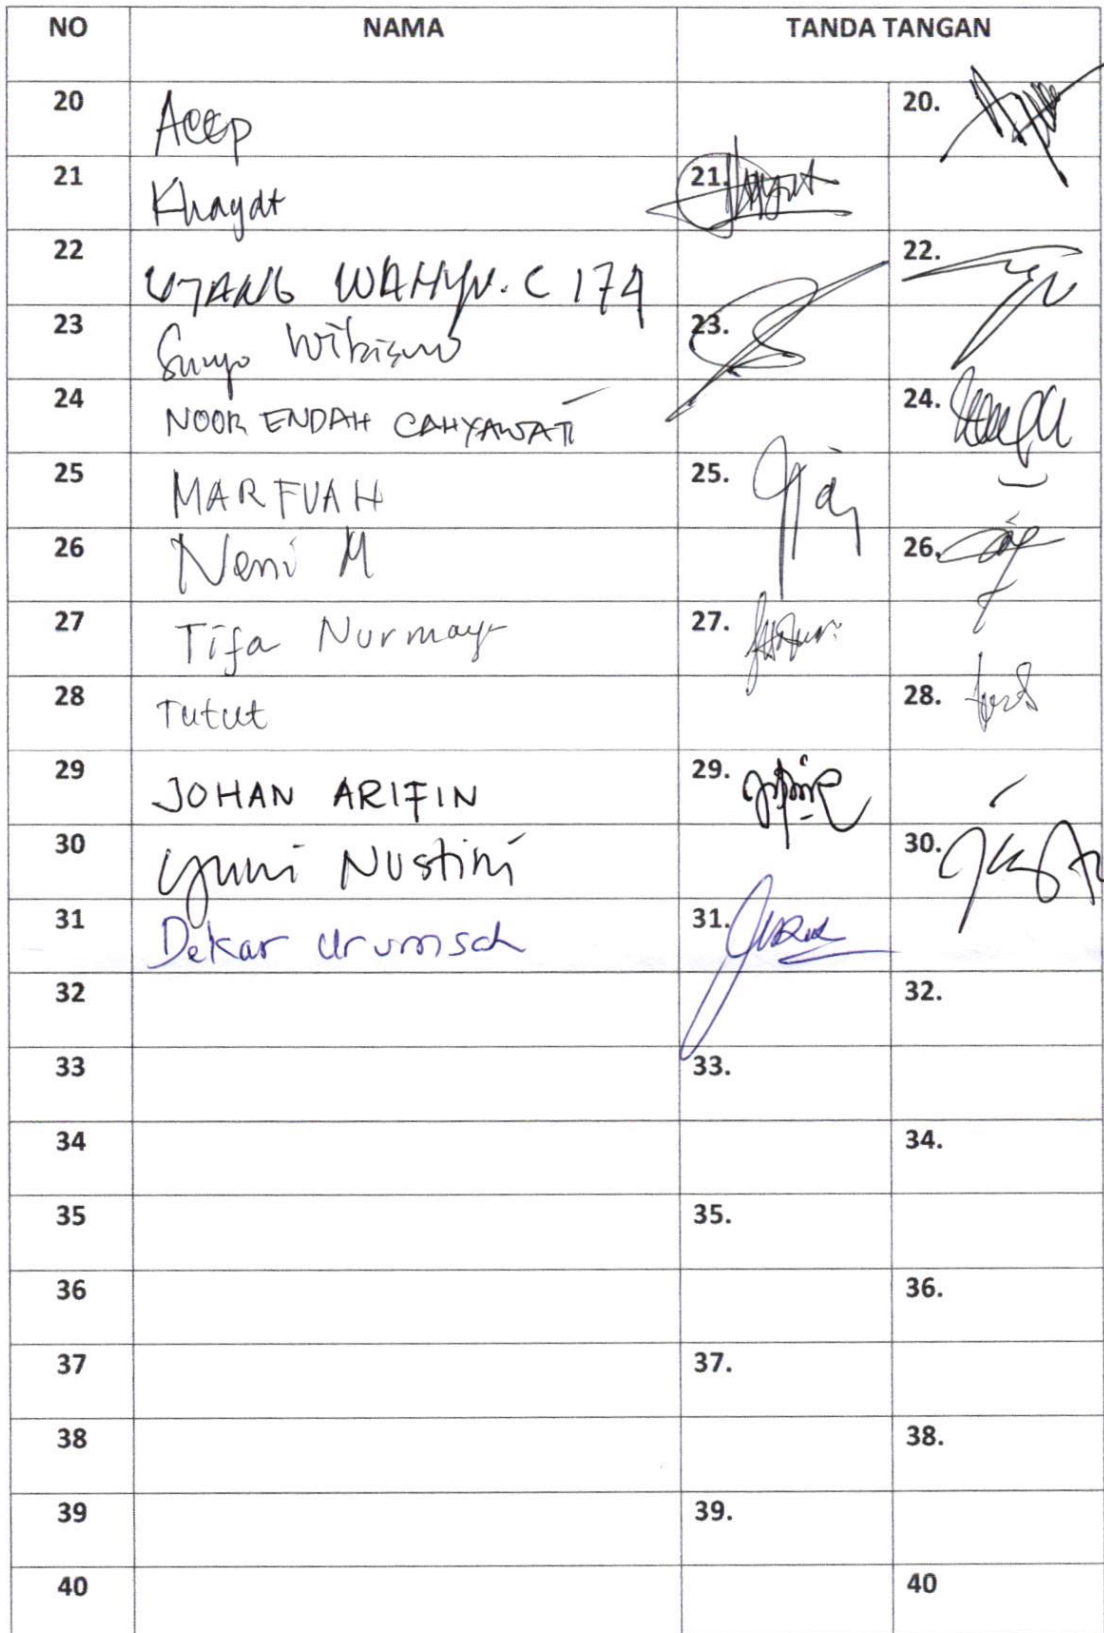 NO NAMA TANDA TANGAN
20 Acep 20.
21 Khayat 21.
22 WAHYU. C 174 22.
23 Wibisono 23.
24 NOOR ENDAH CAHYAWATI 24.
25 MARFUAH 25.
26 Neni M 26.
27 Tifa Nurmaya 27.
28 Tutut 28.
29 JOHAN ARIFIN 29.
30 Yuni Nustini 30.
31 Dekar Urumsah 31.
32 32.
33 33.
34 34.
35 35.
36 36.
37 37.
38 38.
39 39.
40 40